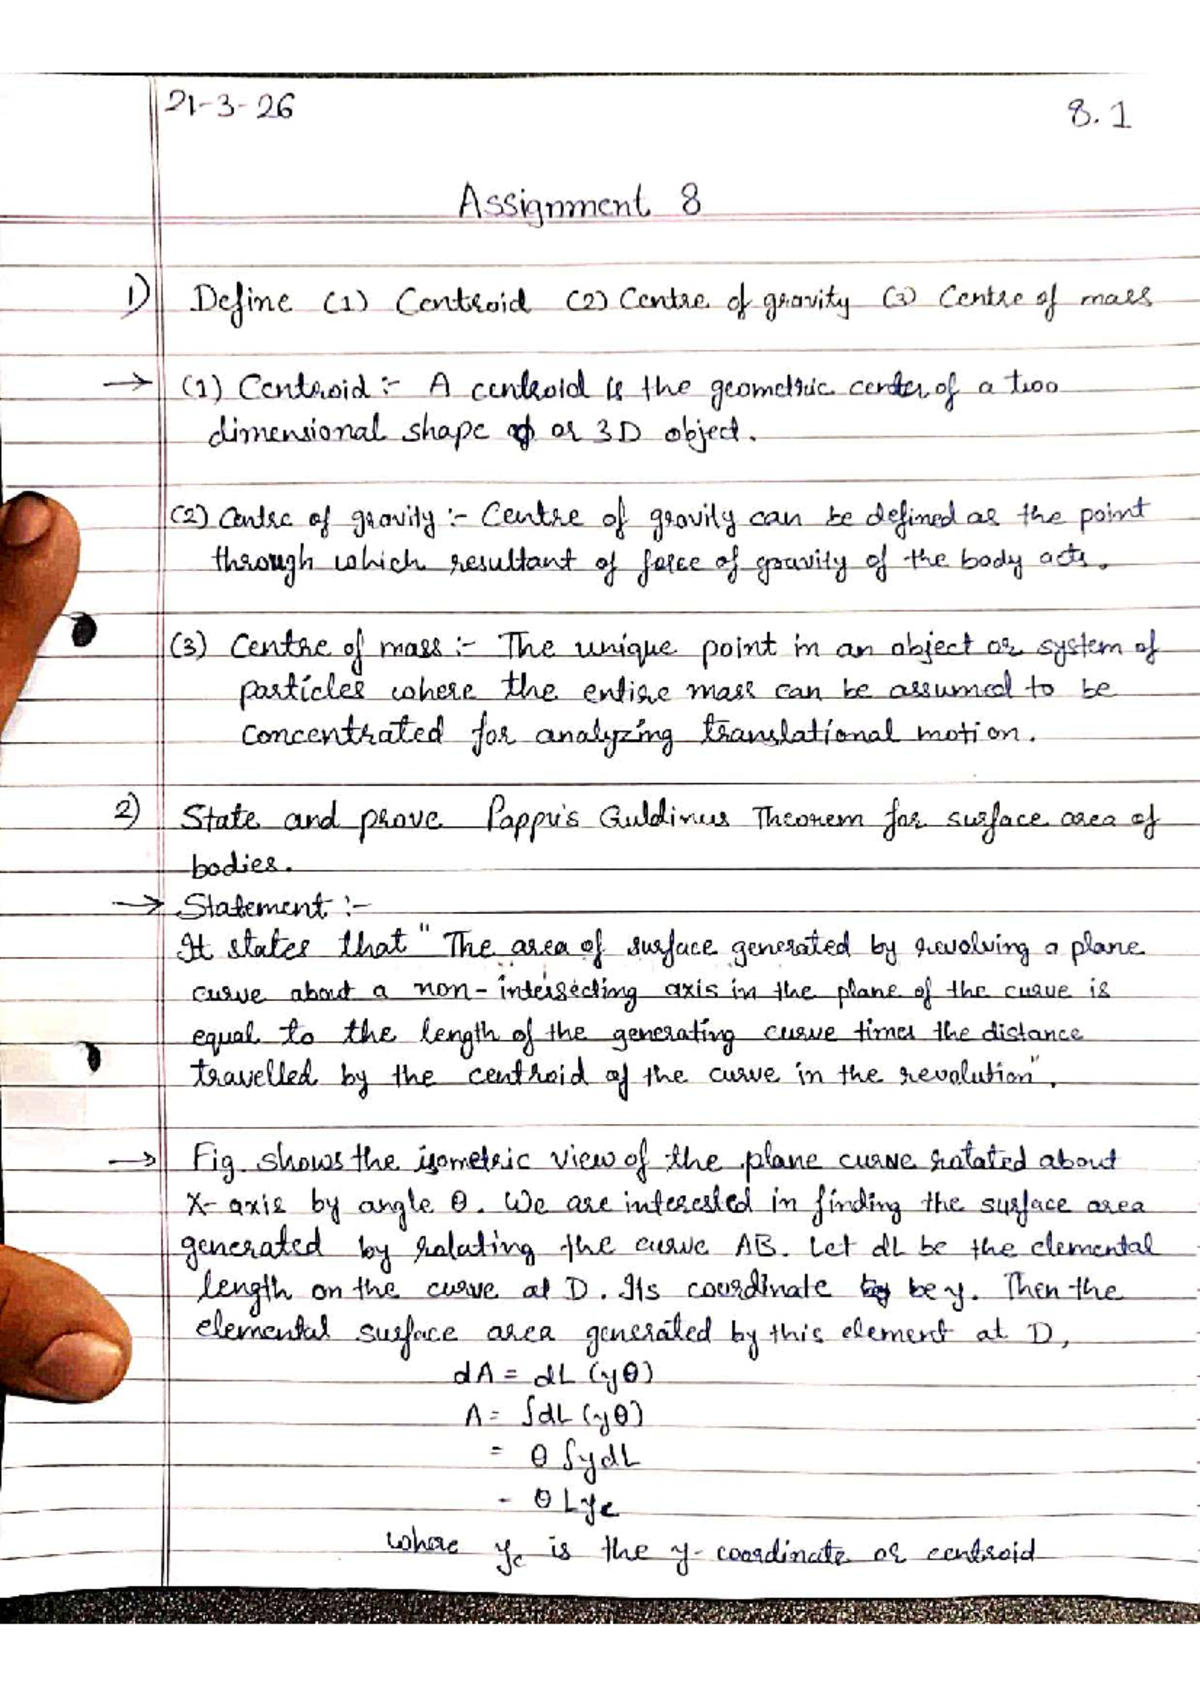 21-3-26
8.1
Assignment 8
1) Define (1) Centroid (2) Centre of gravity (3) Centre of mass
→ (1) Centroid :- A centroid is the geometric center of a two
dimensional shape or 3D object.
(2) Centre of gravity :- Centre of gravity can be defined as the point
through which resultant of force of gravity of the body acts.
(3) Centre of mass :- The unique point in an object or system of
particles where the entire mass can be assumed to be
concentrated for analyzing translational motion.
2) State and prove Pappu's Guldinus Theorem for surface area of
bodies.
→ Statement :-
It states that "The area of surface generated by revolving a plane
curve about a non-intersecting axis in the plane of the curve is
equal to the length of the generating curve times the distance
travelled by the centroid of the curve in the revolution".
→ Fig. shows the isometric view of the plane curve rotated about
X-axis by angle θ. We are interested in finding the surface area
generated by rotating the curve AB. Let dL be the elemental
length on the curve at D. Its coordinate be y. Then the
elemental surface area generated by this element at D,
dA = dL (yθ)
A = ∫dL (yθ)
= θ ∫ydL
- θ Lyc
where yc is the y-coordinate or centroid